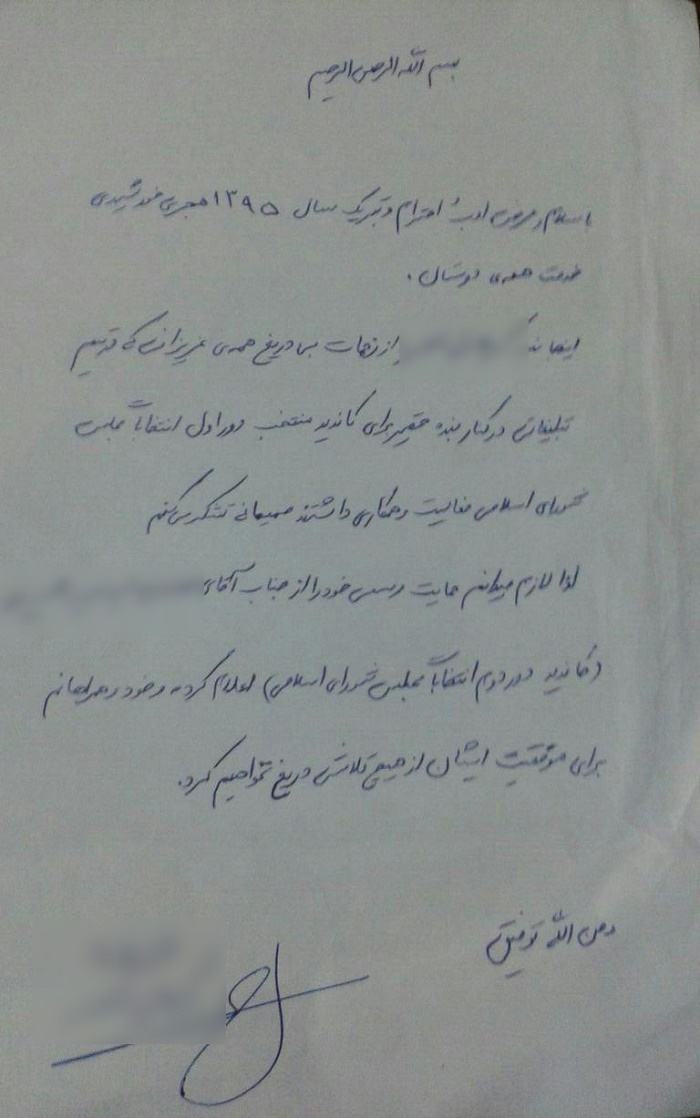 بسم الله الرحمن الرحیم
باسلام و عرض ادب، احترام و تبریک سال ۱۳۹۵ هجری خورشیدی
خدمت همه‌ی دوستان.
اینجانب از زحمات بی دریغ همه‌ی عزیزانی که در تیم
تبلیغاتی در کنار بنده حقیر برای کاندید منتخب دور اول انتخابات مجلس
شورای اسلامی فعالیت و همکاری داشتند صمیمانه تشکر می‌کنم
لذا لازم میدانم حمایت رسمی خود را از جناب آقای
(کاندید دور دوم انتخابات مجلس شورای اسلامی) اعلام کرده و خود و همراهانم
برای موفقیت ایشان از هیچ تلاشی دریغ نخواهیم کرد.
ومن الله توفیق